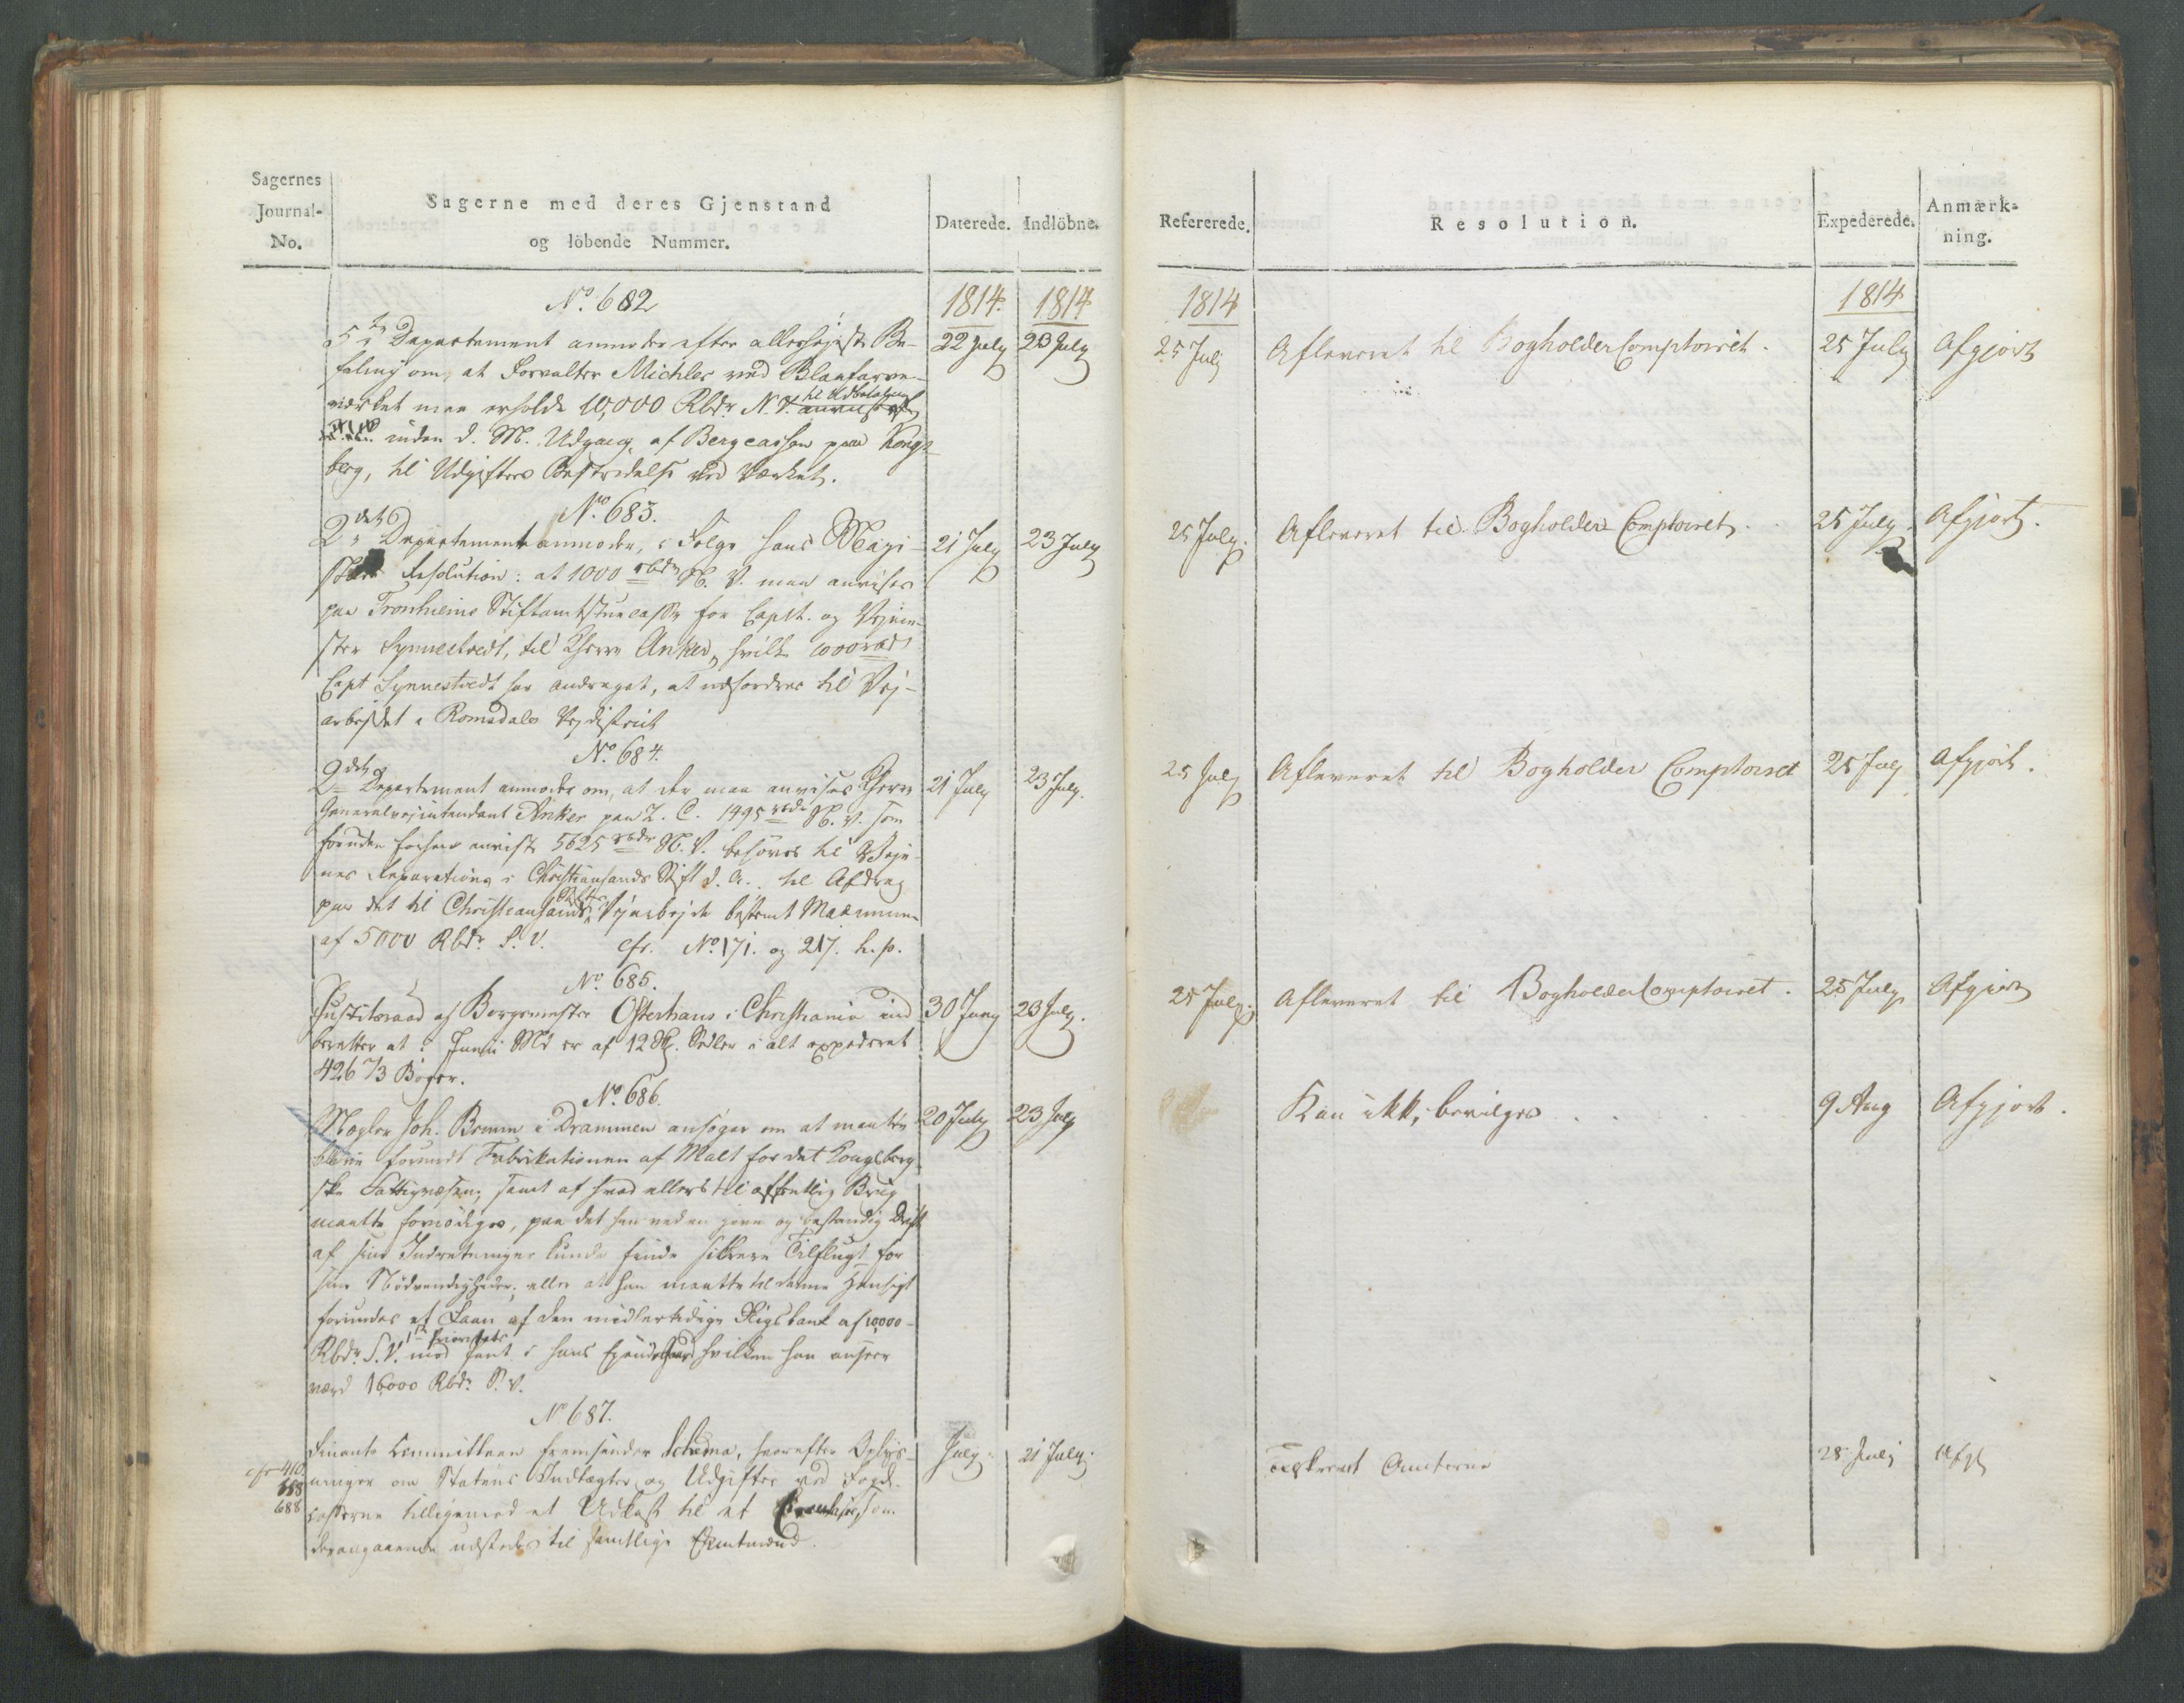 Sagernes
Journal-
No.
Sagerne med deres Gjenstand
og löbende Nummer.
Daterede.
Indlöbne.
Refererede.
Resolution.
Expederede.
Anmærk-
ning.
1814
1814
1814
1814
No. 682
5te Departement anmoder efter allerhøjeste Be-
faling om, at Forvalter Michlet ved Blaafarve-
værket maa erholde 10,000 Rbdr N. V. til Udbetaling
inden d. M. Udgang af Bergcassen paa Kongs-
berg, til Udgifters Bestridelse ved Værket.
22 July
23 July
25 July
Afleveret til Bogholder Comptoiret.
25 July
Afgjort
No. 683.
2det Departement anmoder, i Følge hans Maje-
stæts Resolution: at 1000 rbdr N. V. maa anvises
paa Tronhiems Stiftamtstuecasse for Capt. og Vejme-
ster Synnestvedt, til Kherre Anker, hvilke 1000 rbd
Capt Synnestvedt har andraget, at udfordres til Vej-
arbejdet i Romsdals Vejdistrict
21 July
23 July
25 July.
Afleveret til Bogholder Comptoiret.
25 July
Afgjort.
No. 684.
2det Departement anmoder om, at der maa anvises Kherre
Generalvejintendant Anker paa Z. C. 1495 rbdr N. V. som
foruden forhen anviste 5625 rbdr N. V. behøves til Veje-
nes Reparation i Christiansands Stift d. A. til Afdrag
paa det til Christiansands Stifts Vejarbejde bestemt Maximum
af 5000 Rbdr S. V. cfr. No. 171. og 217. h. p.
21 July
23 July.
25 July
Afleveret til Bogholder Comptoiret
25 July
Afgjort.
No. 685.
Justitsraad og Borgemester Osterhaus i Christiania ind-
beretter at i Junii Md er af 12 Sk. Sedler i alt expederet
42673 Bøger.
30 Juny
23 July.
25 July.
Afleveret til Bogholder Comptoiret.
25 July
Afgjort
No. 686.
Mægler Joh. Bemm i Drammen ansøger om at maatte
blive forundt Fabrikationen af Malt for det Kongsberg-
ske Fattigvæsen, samt af hvad ellers til offentlig Brug
maatte fornødiges, paa det han ved en jevn og bestandig Drift
af sine Indretninger kunde finde sikkere Tilflugt for
sine Nødvendigheder; eller at han maatte til denne Hensigt
forundes et Laan af den midlertidige Rigsbank af 10,000
Rbdr S. V. mod 1ste Prioritets Pant i hans Ejendom, hvilken han anseer
værd 16000 Rbdr S. V.
20 July
23 July
Kan ikke bevilges
9 Aug
Afgjort.
No. 687.
cfr 410
688
Finants Committeen fremsender Schema, hvorefter Oplys-
ninger om Statens Indtægter og Udgifter ved Fogd-
casserne tilligemed et Udkast til et Circulaire, som
derangaaende udstedes til samtlige Amtmænd.
July
21 July.
Amterne
28 July
Afgj